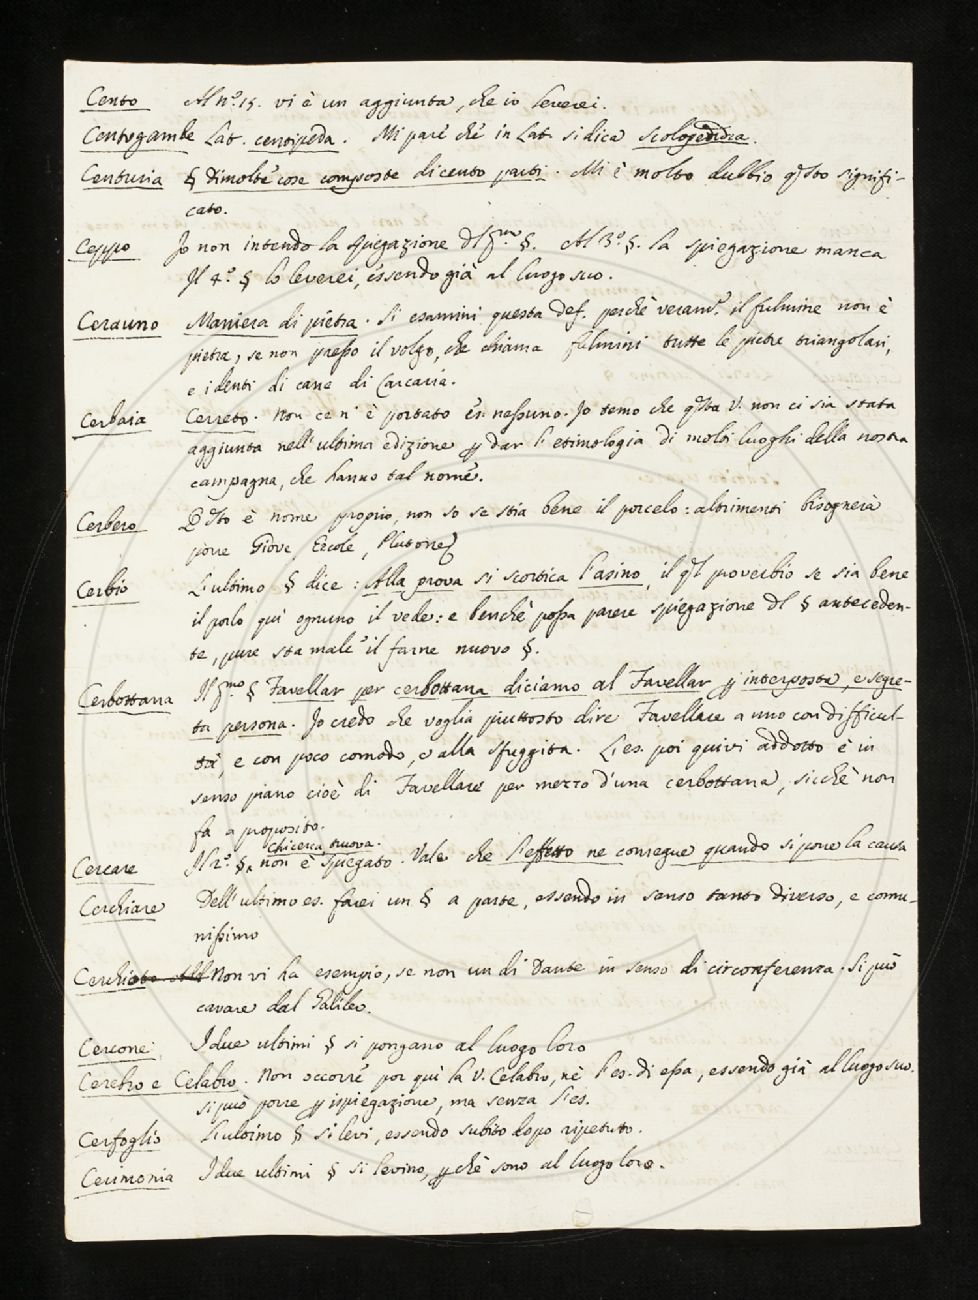 Cento Al n.º 15. vi è un aggiunta, che io leverei.
Centogambe Lat. centipeda. Mi pare che in Lat. si dica
Centuria § Dimolte cose composte di cento parti. Mi è molto dubbio q.sto signifi-
cato.
Ceppo Io non intendo la spiegazione dl p.mo §. Al 3.º §. la spiegazione manca
Il 4.º § lo leverei, essendo già al luogo suo.
Cerauno Maniera di pietra. Si esamini questa def. perchè veram.e il fulmine non è
pietra, se non presso il volgo, che chiama fulmini tutte le pietre triangolari,
e i denti di cane di Carcaria.
Cerbaia Cerreto. Non ce n' è portato es. nessuno. Io temo che q.sta V. non ci sia stata
aggiunta nell' ultima edizione p dar l' etimologia di molti luoghi della nostra
campagna, che hanno tal nome.
Cerbero Q.sto è nome proprio, non so se stia bene il porcelo: altrimenti bisogneria
porre Giove, Ercole, Plutone
Cerbio L'ultimo § dice: Alla prova si scortica l'asino, il q.l proverbio se sia bene
il porlo quì ognuno il vede: e benchè possa parere spiegazione dl § anteceden-
te, pure sta male il farne nuovo §.
Cerbottana Il p.mo § Favellar per cerbottana diciamo al Favellar p interposta, e segre-
ta persona. Io credo che voglia piuttosto dire Favellare a uno con difficul-
tà, e con poco comodo, o alla sfuggita. L'es. poi quivi addotto è in
senso piano cioè di Favellare per mezzo d'una cerbottana, sicchè non
fa a proposito.
Chicerca, truova.
Cercare Il 2.º § non è spiegato. Vale che l'effetto ne consegue quando si pone la causa
Cerchiare Dell' ultimo es. farei un § a parte, essendo in senso tanto diverso, e comu-
nissimo
Cerchio Non vi ha esempio, se non un di Dante in senso di circonferenza. Si può
cavare dal Galileo.
Cercone I due ultimi § si pongano al luogo loro
Cerebro e Celabro. Non occorre por quì la V. Celabro, nè l'es. di essa, essendo già al luogo suo.
si può porre p ispiegazione, ma senza l'es.
Cerfoglio L'ultimo § si levi, essendo subito dopo ripetuto.
Cerimonia I due ultimi § si levino, p chè sono al luogo loro.